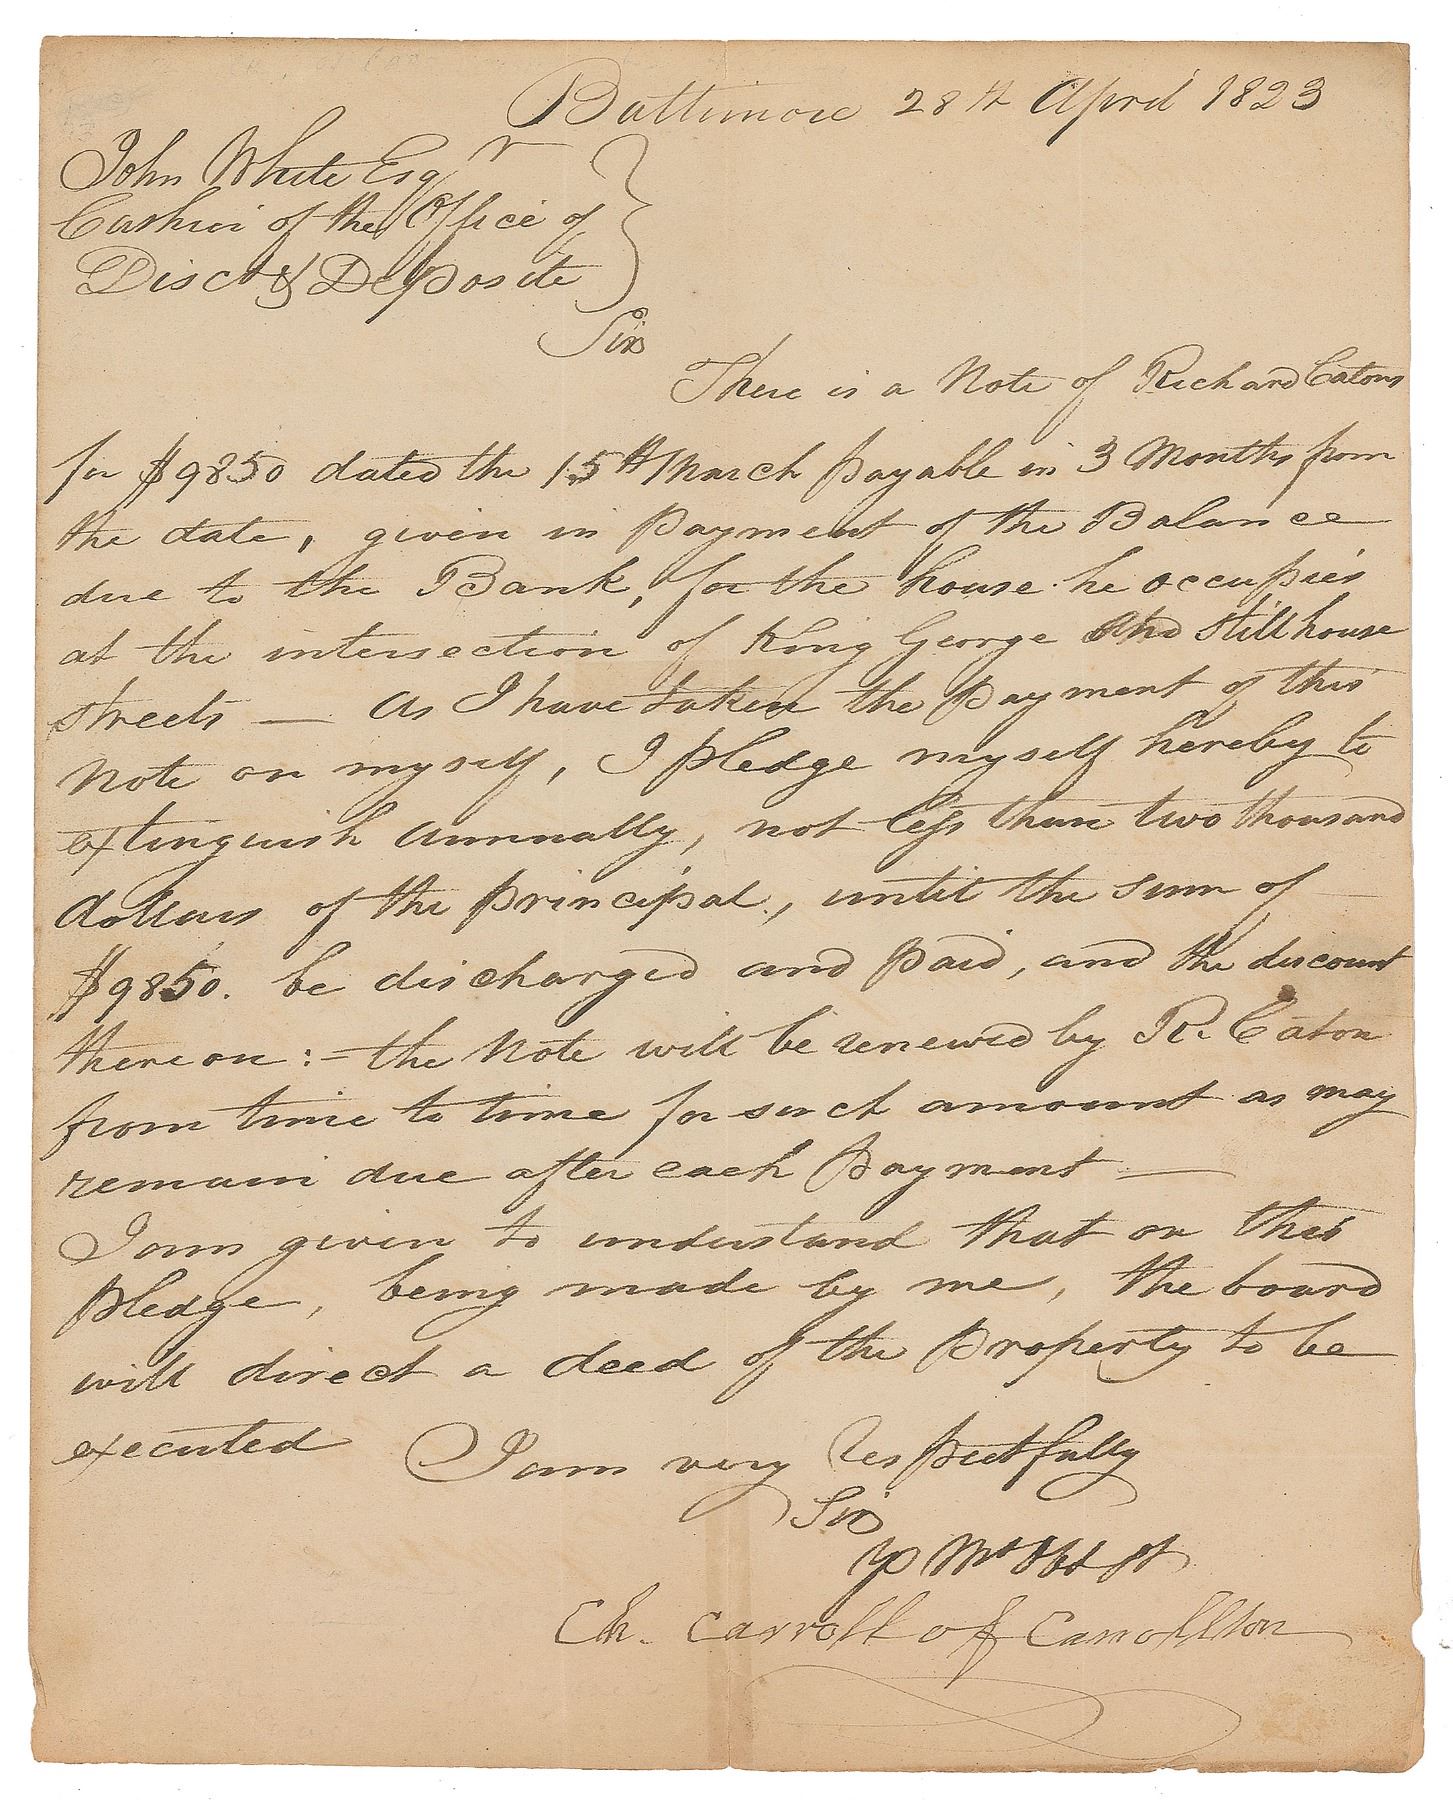 Baltimore 28th April 1823
John White Esqr
Cashier of the Office of
Disct & Deposite
Sir
There is a Note of Richard Catons
for $9850 dated the 15th March payable in 3 Months from
the date, given in payment of the Balance
due to the Bank, for the house he occupies
at the intersection of King George and Still house
streets — As I have taken the payment of this
Note on myself, I pledge myself hereby to
extinguish annually, not less than two thousand
dollars of the principal, until the sum of
$9850. be discharged and paid, and the discount
thereon :- the Note will be renewed by R. Caton
from time to time for such amount as may
remain due after each payment —
I am given to understand that on this
pledge, being made by me, the board
will direct a deed of the Property to be
executed I am very respectfully
Sir
Yr Mt Obt St
Ch. Carroll of Carrollton